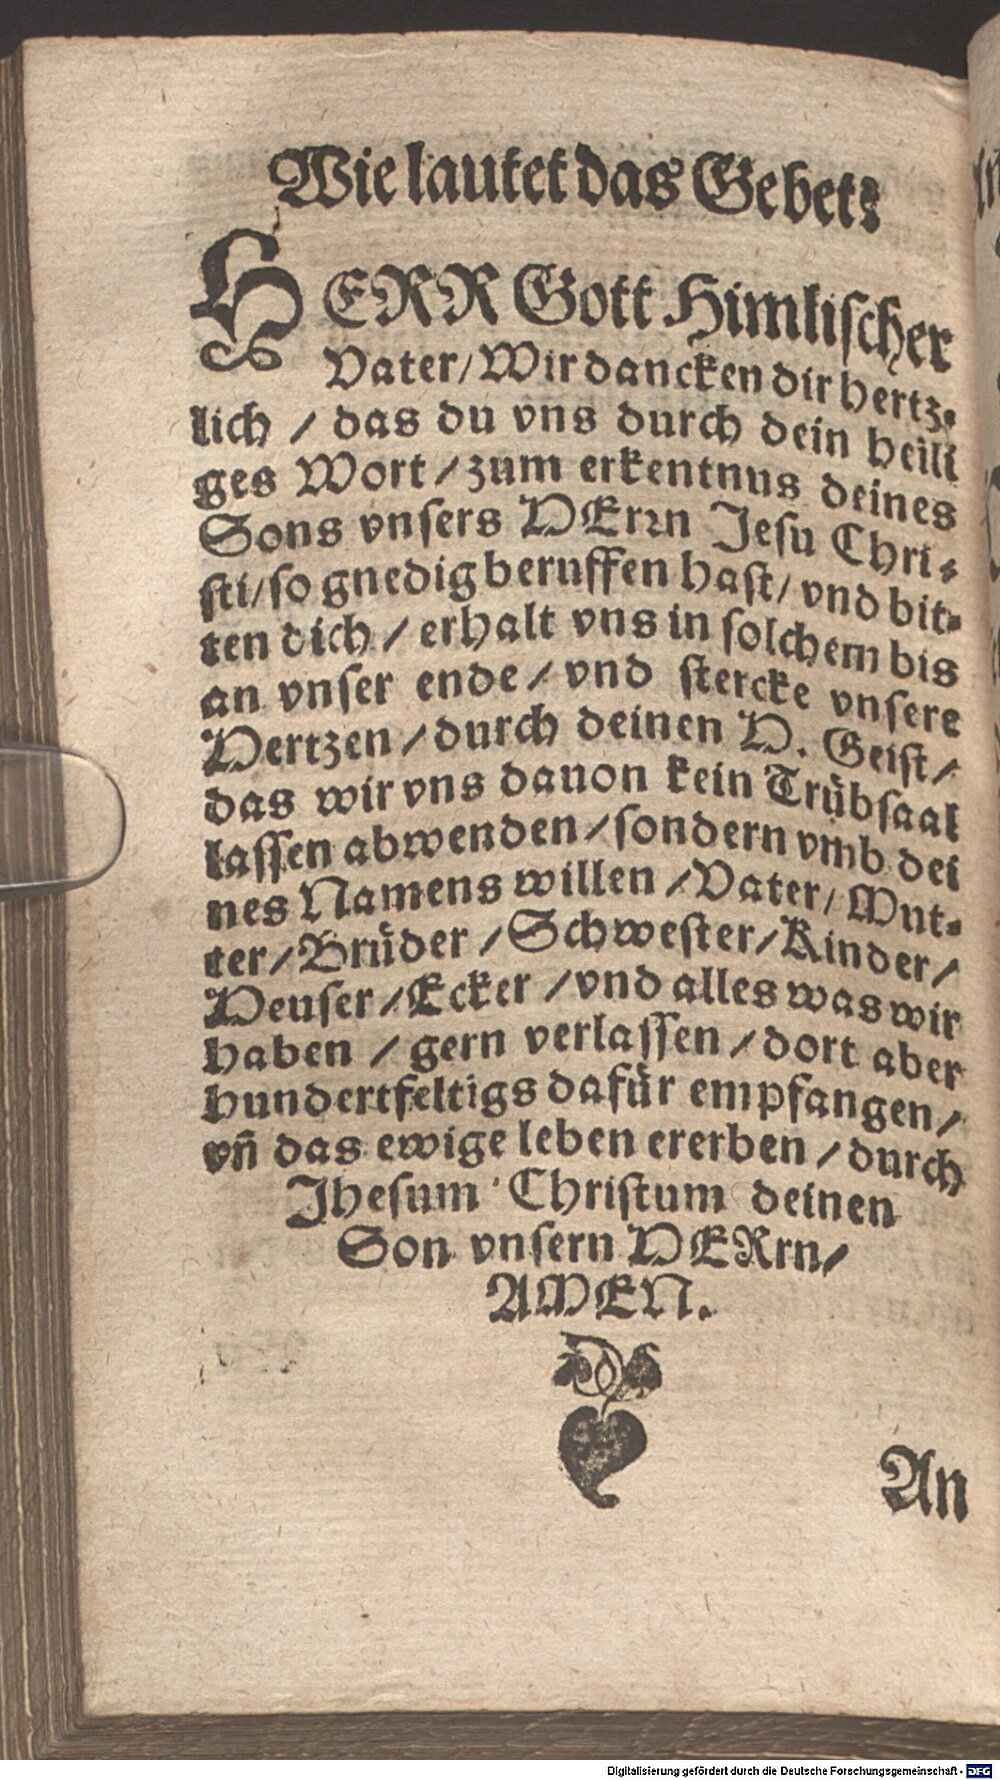 Wie lautet das Gebet?
HERR Gott Himlischer
Vater/ Wir dancken dir hertz⸗
lich / das du vns durch dein heili
ges Wort / zum erkentnus deines
Sons vnsers HErꝛn Jesu Chri⸗
sti/ so gnedig beruffen hast/ vnd bit⸗
ten dich / erhalt vns in solchem bis
an vnser ende / vnd stercke vnsere
Hertzen / durch deinen H. Geist /
das wir vns dauon kein Trübsaal
lassen abwenden / sondern vmb dei
nes Namens willen / Vater/ Mut⸗
ter / Brüder / Schwester / Kinder /
Heuser / Ecker / vnd alles was wir
haben / gern verlassen / dort aber
hundertfeltigs dafür empfangen /
vñ das ewige leben ererben / durch
Jhesum Christum deinen
Son vnsern HERrn /
AMEN.
An
Digitalisierung gefördert durch die Deutsche Forschungsgemeinschaft - DFG